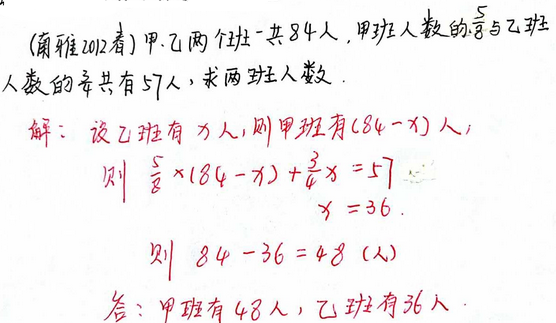 (南雅2012春)甲、乙两个班一共84人,甲班人数的5/8与乙班
人数的3/4共有57人,求两班人数.
解:设乙班有x人,则甲班有(84-x)人,
则 5/8×(84-x)+3/4x=57
x=36.
则 84-36=48(人)
答:甲班有48人,乙班有36人.